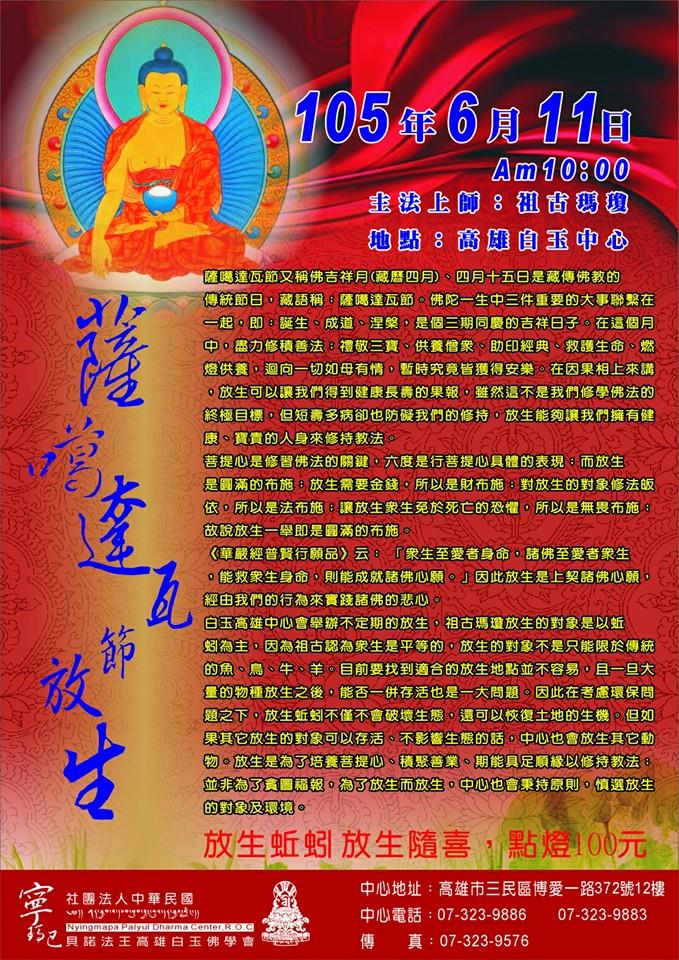 105年6月11日
Am10:00
主法上師：祖古瑪瓊
地點：高雄白玉中心
薩噶達瓦節放生
薩噶達瓦節又稱佛吉祥月(藏曆四月)、四月十五日是藏傳佛教的
傳統節日，藏語稱：薩噶達瓦節。佛陀一生中三件重要的大事聯繫在
一起，即：誕生、成道、涅槃，是個三期同慶的吉祥日子。在這個月
中，盡力修積善法：禮敬三寶、供養僧衆、助印經典、救護生命、燃
燈供養，迴向一切如母有情，暫時究竟皆獲得安樂。在因果相上來講
，放生可以讓我們得到健康長壽的果報，雖然這不是我們修學佛法的
終極目標，但短壽多病卻也防礙我們的修持，放生能夠讓我們擁有健
康、寶貴的人身來修持教法。
菩提心是修習佛法的關鍵，六度是行菩提心具體的表現：而放生
是圓滿的布施：放生需要金錢，所以是財布施：對放生的對象修法皈
依，所以是法布施：讓放生衆生免於死亡的恐懼，所以是無畏布施：
故說放生一舉即是圓滿的布施。
《華嚴經普賢行願品》云：「衆生至愛者身命，諸佛至愛者衆生
，能救衆生身命，則能成就諸佛心願。」因此放生是上契諸佛心願，
經由我們的行為來實踐諸佛的悲心。
白玉高雄中心會舉辦不定期的放生，祖古瑪瓊放生的對象是以蚯
蚓為主，因為祖古認為衆生是平等的，放生的對象不是只能限於傳統
的魚、鳥、牛、羊。目前要找到適合的放生地點並不容易，且一旦大
量的物種放生之後，能否一併存活也是一大問題。因此在考慮環保問
題之下，放生蚯蚓不僅不會破壞生態，還可以恢復土地的生機。但如
果其它放生的對象可以存活、不影響生態的話，中心也會放生其它動
物。放生是為了培養菩提心、積聚善業、期能具足順緣以修持教法：
並非為了貪圖福報，為了放生而放生，中心也會秉持原則，慎選放生
的對象及環境。
放生蚯蚓 放生隨喜，點燈100元
寧瑪巴
社團法人中華民國
Nyingmapa Palyul Dharma Center,R.O.C
貝諾法王高雄白玉佛學會
中心地址：高雄市三民區博愛一路372號12樓
中心電話：07-323-9886　07-323-9883
傳　真：07-323-9576